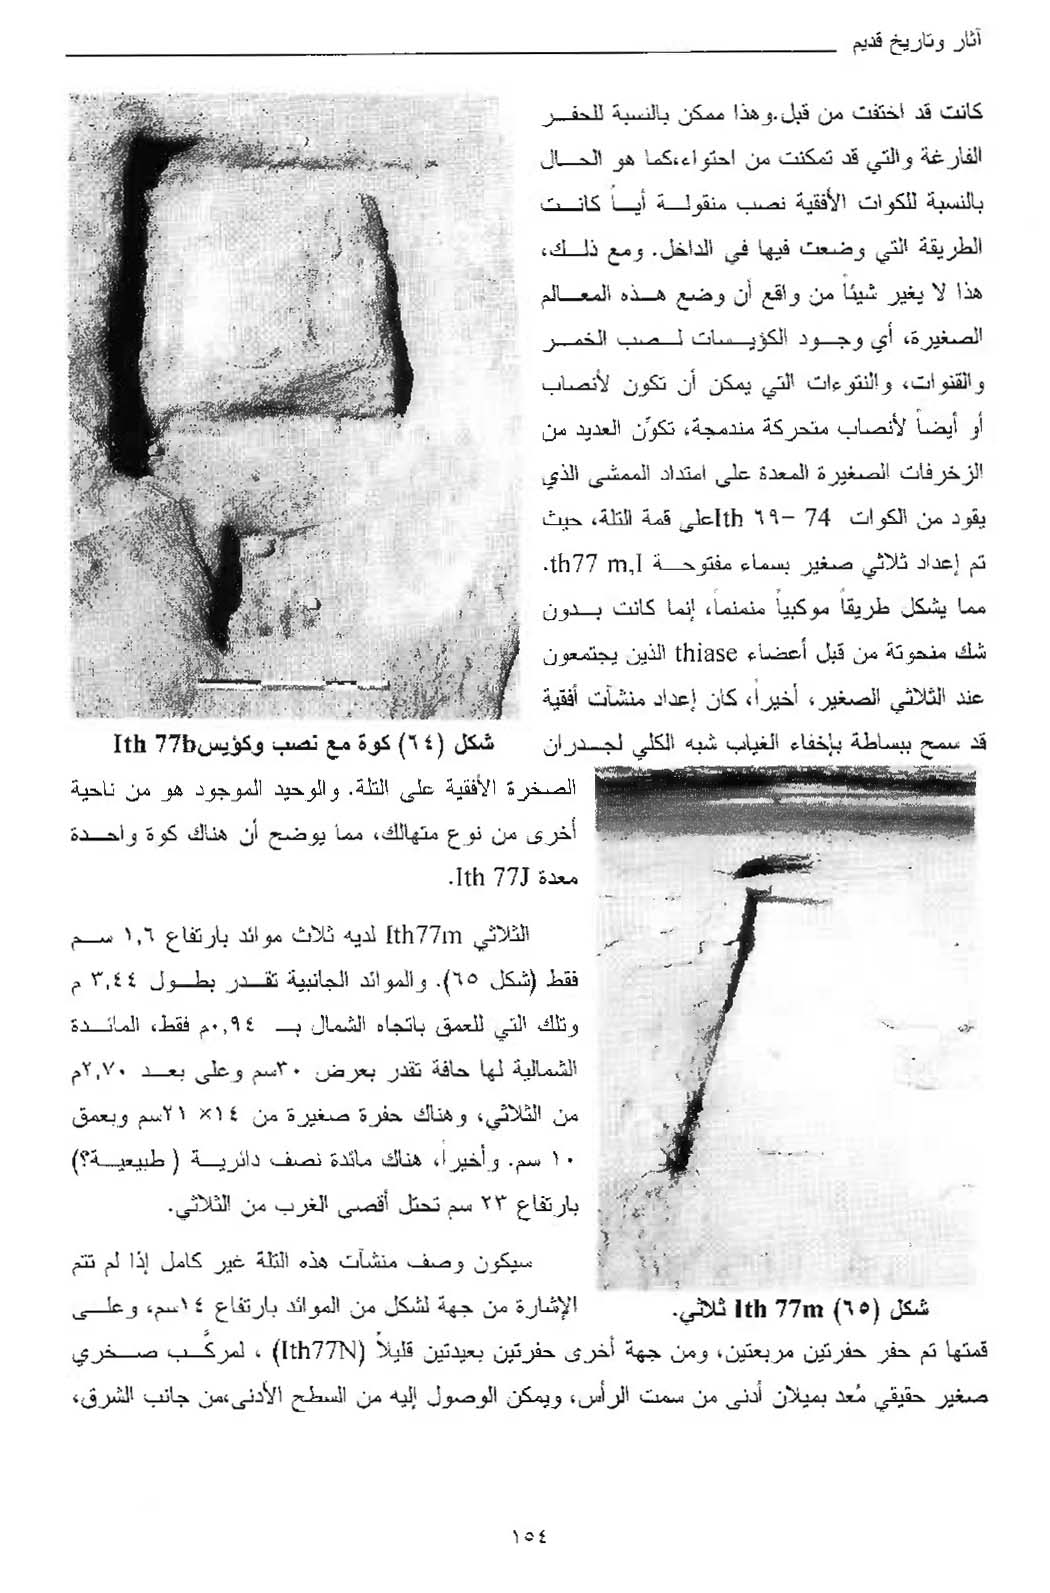 آثار وتاريخ قديم
كانت قد اختفت من قبل.وهذا ممكن بالنسبة للحفر
الفارغة والتي قد تمكنت من احتواء،كما هو الحال
بالنسبة للكوات الأفقية نصب منقولة أياً كانت
الطريقة التي وضعت فيها في الداخل. ومع ذلك،
هذا لا يغير شيئاً من واقع أن وضع هذه المعالم
الصغيرة، أي وجود الكؤيسات لصب الخمر
والقنوات، والنتوءات التي يمكن أن تكون لأنصاب
أو أيضاً لأنصاب متحركة مندمجة، تكوِّن العديد من
الزخرفات الصغيرة المعدة على امتداد الممشى الذي
يقود من الكوات Ith ٦٩– 74على قمة التلة، حيث
تم إعداد ثلاثي صغير بسماء مفتوحة th77 m,I.
مما يشكل طريقاً موكبياً منمنماً، إنما كانت بدون
شك منحوتة من قبل أعضاء thiase الذين يجتمعون
عند الثلاثي الصغير، أخيراً، كان إعداد منشآت أفقية
قد سمح ببساطة بإخفاء الغياب شبه الكلي لجدران
شكل (٦٤) كوة مع نصب وكؤيسIth 77b
الصخرة الأفقية على التلة. والوحيد الموجود هو من ناحية
أخرى من نوع متهالك، مما يوضح أن هناك كوة واحدة
معدة Ith 77J.
الثلاثي Ith77m لديه ثلاث موائد بارتفاع ١,٦ سم
فقط (شكل ٦٥). والموائد الجانبية تقدر بطول ٣,٤٤ م
وتلك التي للعمق باتجاه الشمال بـ ٠,٩٤م فقط، المائدة
الشمالية لها حافة تقدر بعرض ٣٠سم وعلى بعد ٢,٧٠م
من الثلاثي، وهناك حفرة صغيرة من ١٤× ٢١سم وبعمق
١٠ سم. وأخيراً، هناك مائدة نصف دائرية ( طبيعية؟)
بارتفاع ٢٣ سم تحتل أقصى الغرب من الثلاثي.
سيكون وصف منشآت هذه التلة غير كامل إذا لم تتم
الإشارة من جهة لشكل من الموائد بارتفاع ١٤سم، وعلى
شكل (٦٥) Ith 77m ثلاثي.
قمتها تم حفر حفرتين مربعتين، ومن جهة أخرى حفرتين بعيدتين قليلاً (Ith77N) ، لمركَّب صخري
صغير حقيقي مُعد بميلان أدنى من سمت الرأس، ويمكن الوصول إليه من السطح الأدنى،من جانب الشرق،
١٥٤